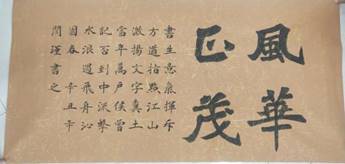 風華
正茂
書生意氣揮斥
方遒指點江山
激揚文字糞土
當年萬戶侯曾
記否到中流擊
水浪遏飛舟沁
園春 辛丑年
閆瑾書之